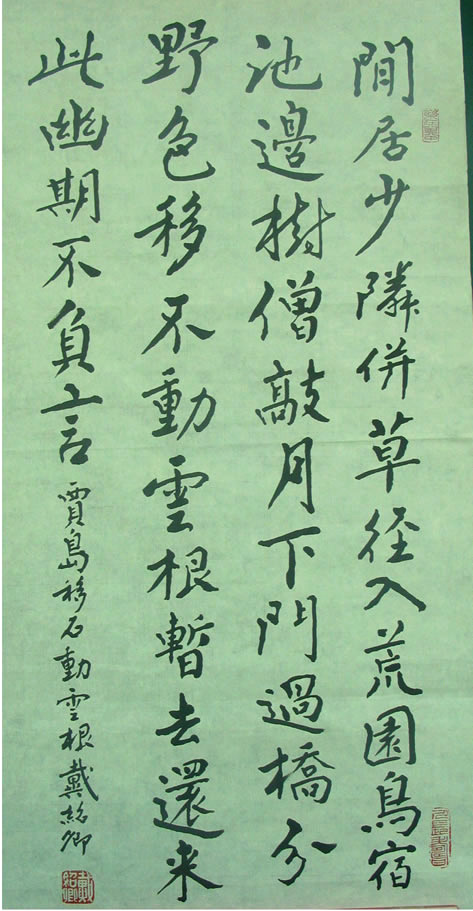 閒居少隣併草径入荒園鳥宿
池邊樹僧敲月下門過橋分
野色移不動雲根暫去還来
此幽期不負言
賈島移石動雲根戴紹卿
戴紹卿